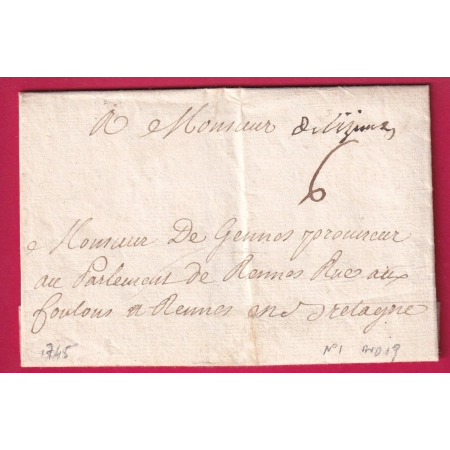 A Monsieur de lizieux
6
Monsieur De Gennes procureur
au Parlement de Rennes Rue aux
foulons a Rennes en Bretagne
1745 N°1 IND 19